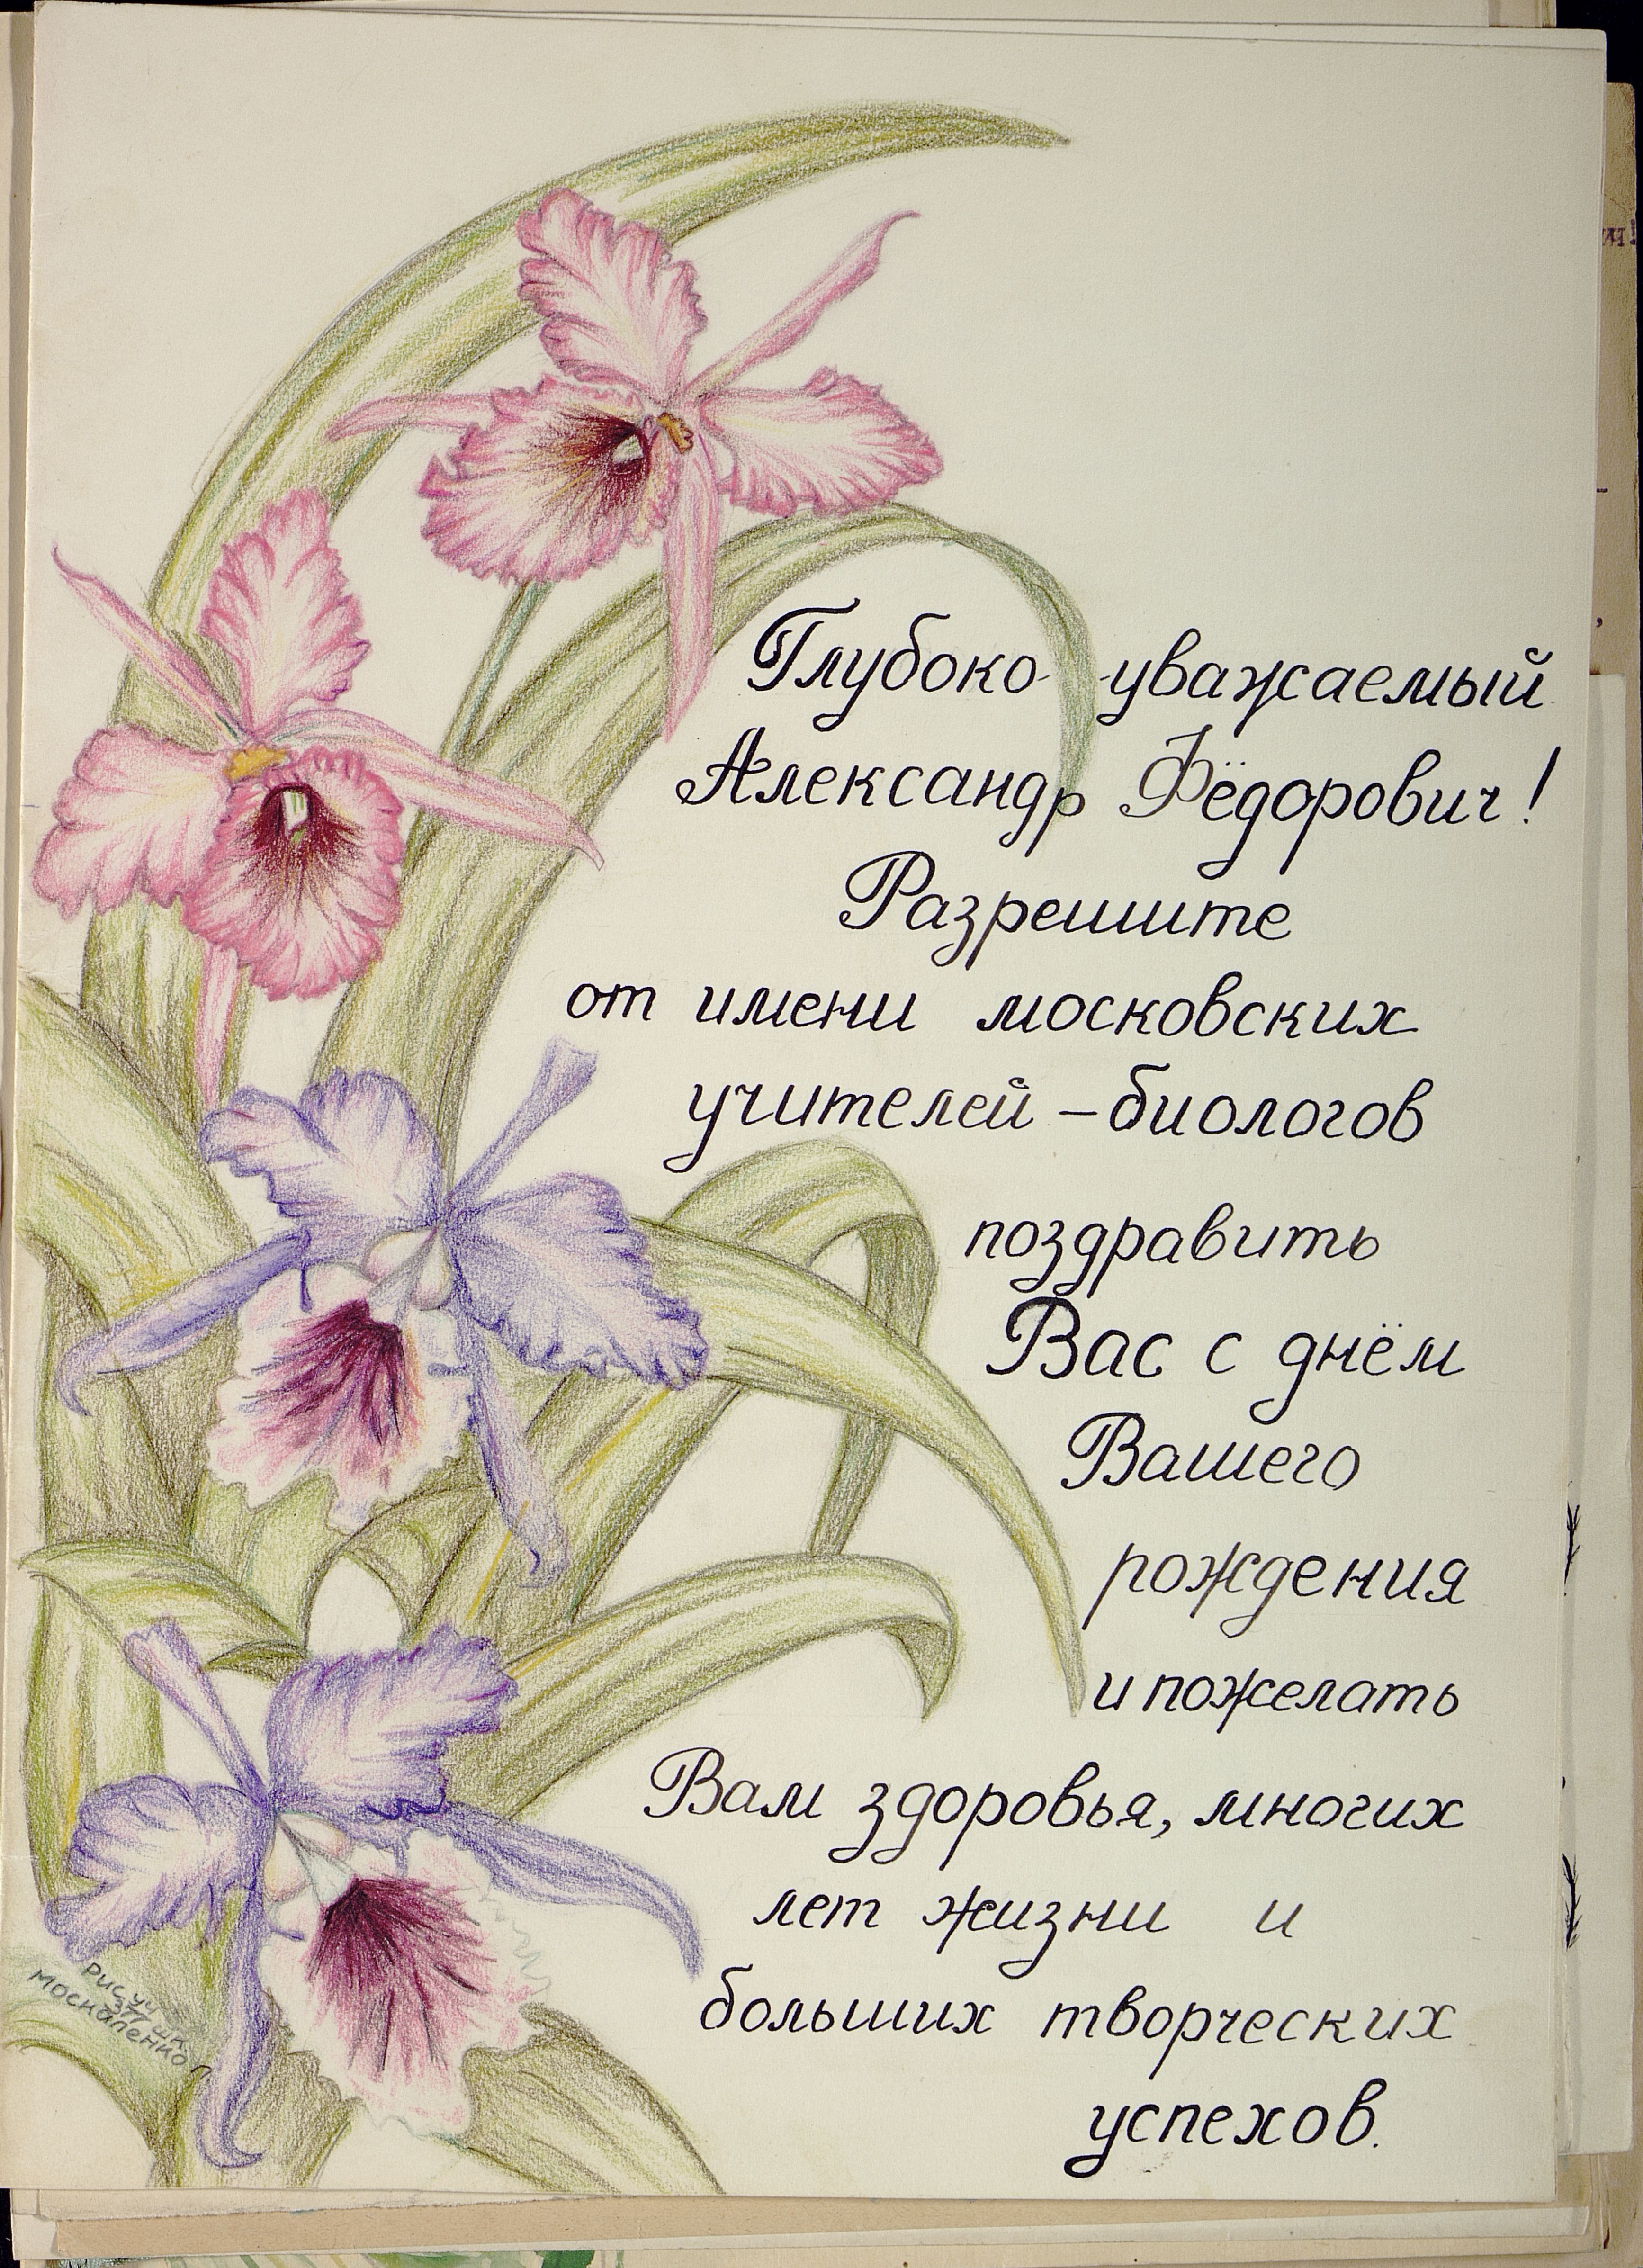 Глубоко-уважаемый
Александр Фёдорович!
Разрешите
от имени московских
учителей – биологов
поздравить
Вас с днём
Вашего
рождения
и пожелать
Вам здоровья, многих
лет жизни и
больших творческих
успехов.
Рис. уч
377 шк.
Москаленко